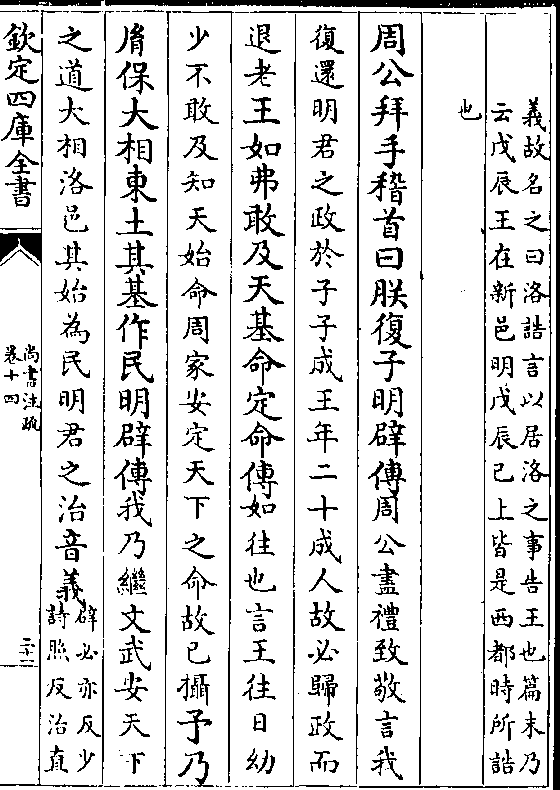 義故名之曰洛誥言以居洛之事告王也篇末乃
云戊辰王在新邑明戊辰已上皆是西都時所誥
也
周公拜手稽首曰朕復子明辟傳周公盡禮致敬言我
復還明君之政於子子成王年二十成人故必歸政而
退老王如弗敢及天基命定命傳如往也言王往日幼
少不敢及知天始命周家安定天下之命故已攝予乃
胤保大相東土其基作民明辟傳我乃繼文武安天下
之道大相洛邑其始為民明君之治音義
辟必亦反少
詩照反治直
欽定四庫全書
尚書注疏
卷十四
二十二